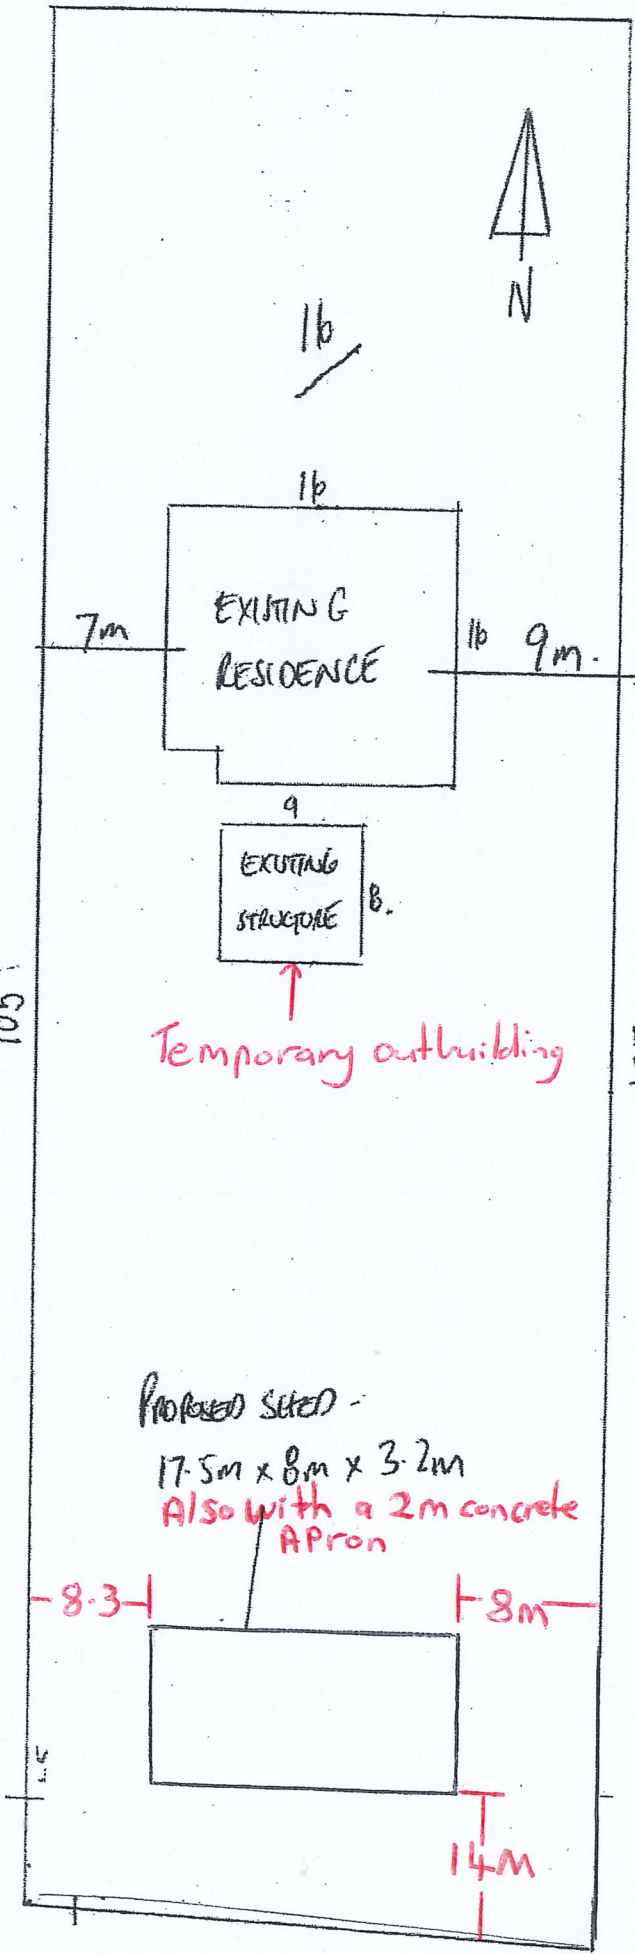 N
16
16
EXISTING
RESIDENCE
7m
16
9m.
9
EXISTING
STRUCTURE
8.
105
Temporary outbuilding
PROPOSED SHED -
17.5m x 8m x 3.2m
Also with a 2m concrete
APron
8.3
8m
14M